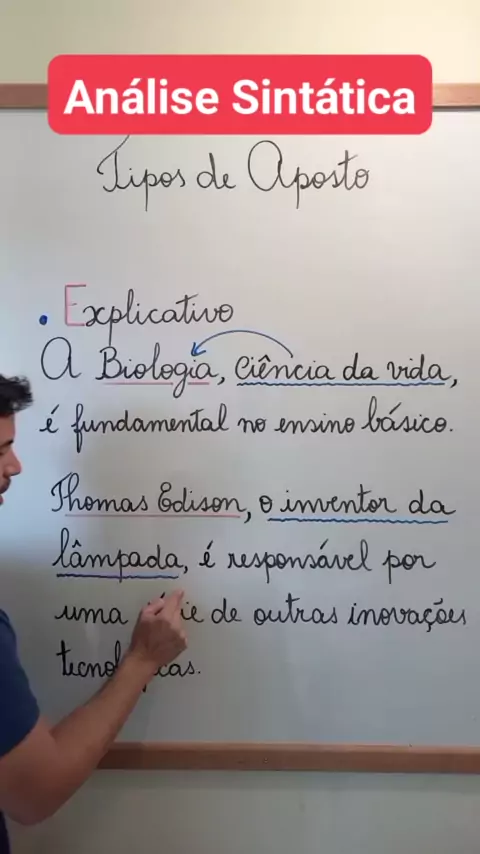 Análise Sintática
Tipos de Aposto
• Explicativo
A Biologia, Ciência da vida,
é fundamental no ensino básico.
Thomas Edison, o inventor da
lâmpada, é responsável por
uma de outras inovações